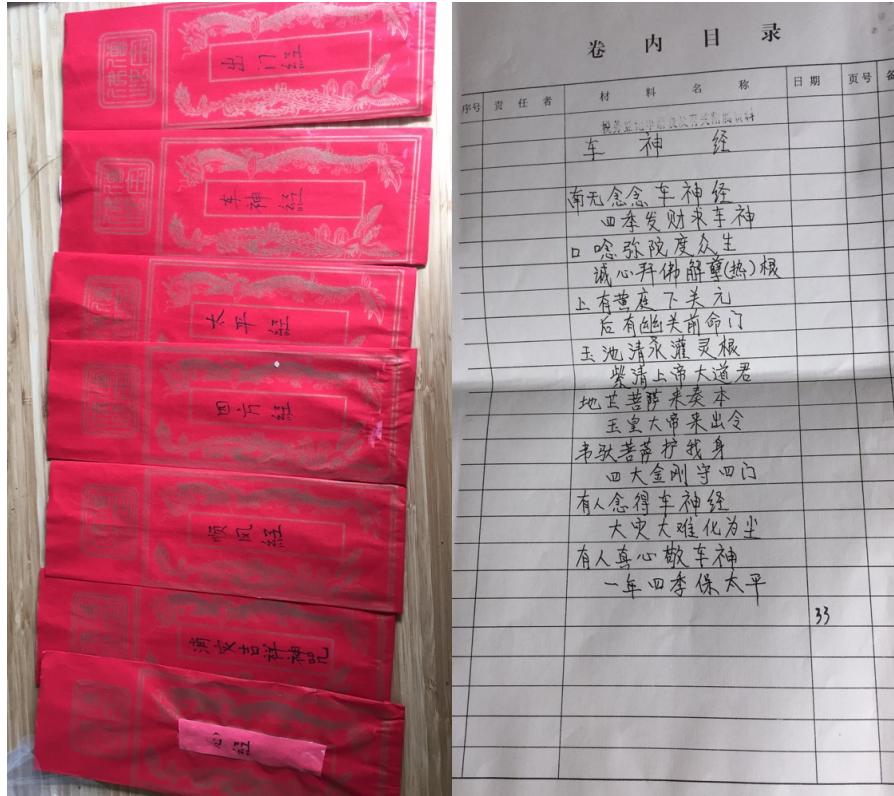 出门經
车神經
太平經
四方經
顺风經
消灾吉祥神咒
心經
卷内目录
序号 责任者 材料名称 日期 页号 备
车神经
南无念念车神经
四季发财求车神
口唸弥陀度众生
诚心拜佛解孽(热)根
上有黄庭下关元
后有幽关前命门
玉池清水灌灵根
紫清上帝大道君
地芷菩萨来奏本
玉皇大帝来出令
韦驮菩萨护我身
四大金刚守四门
有人念得车神经
大灾大难化为尘
有人真心敬车神
一年四季保太平
33